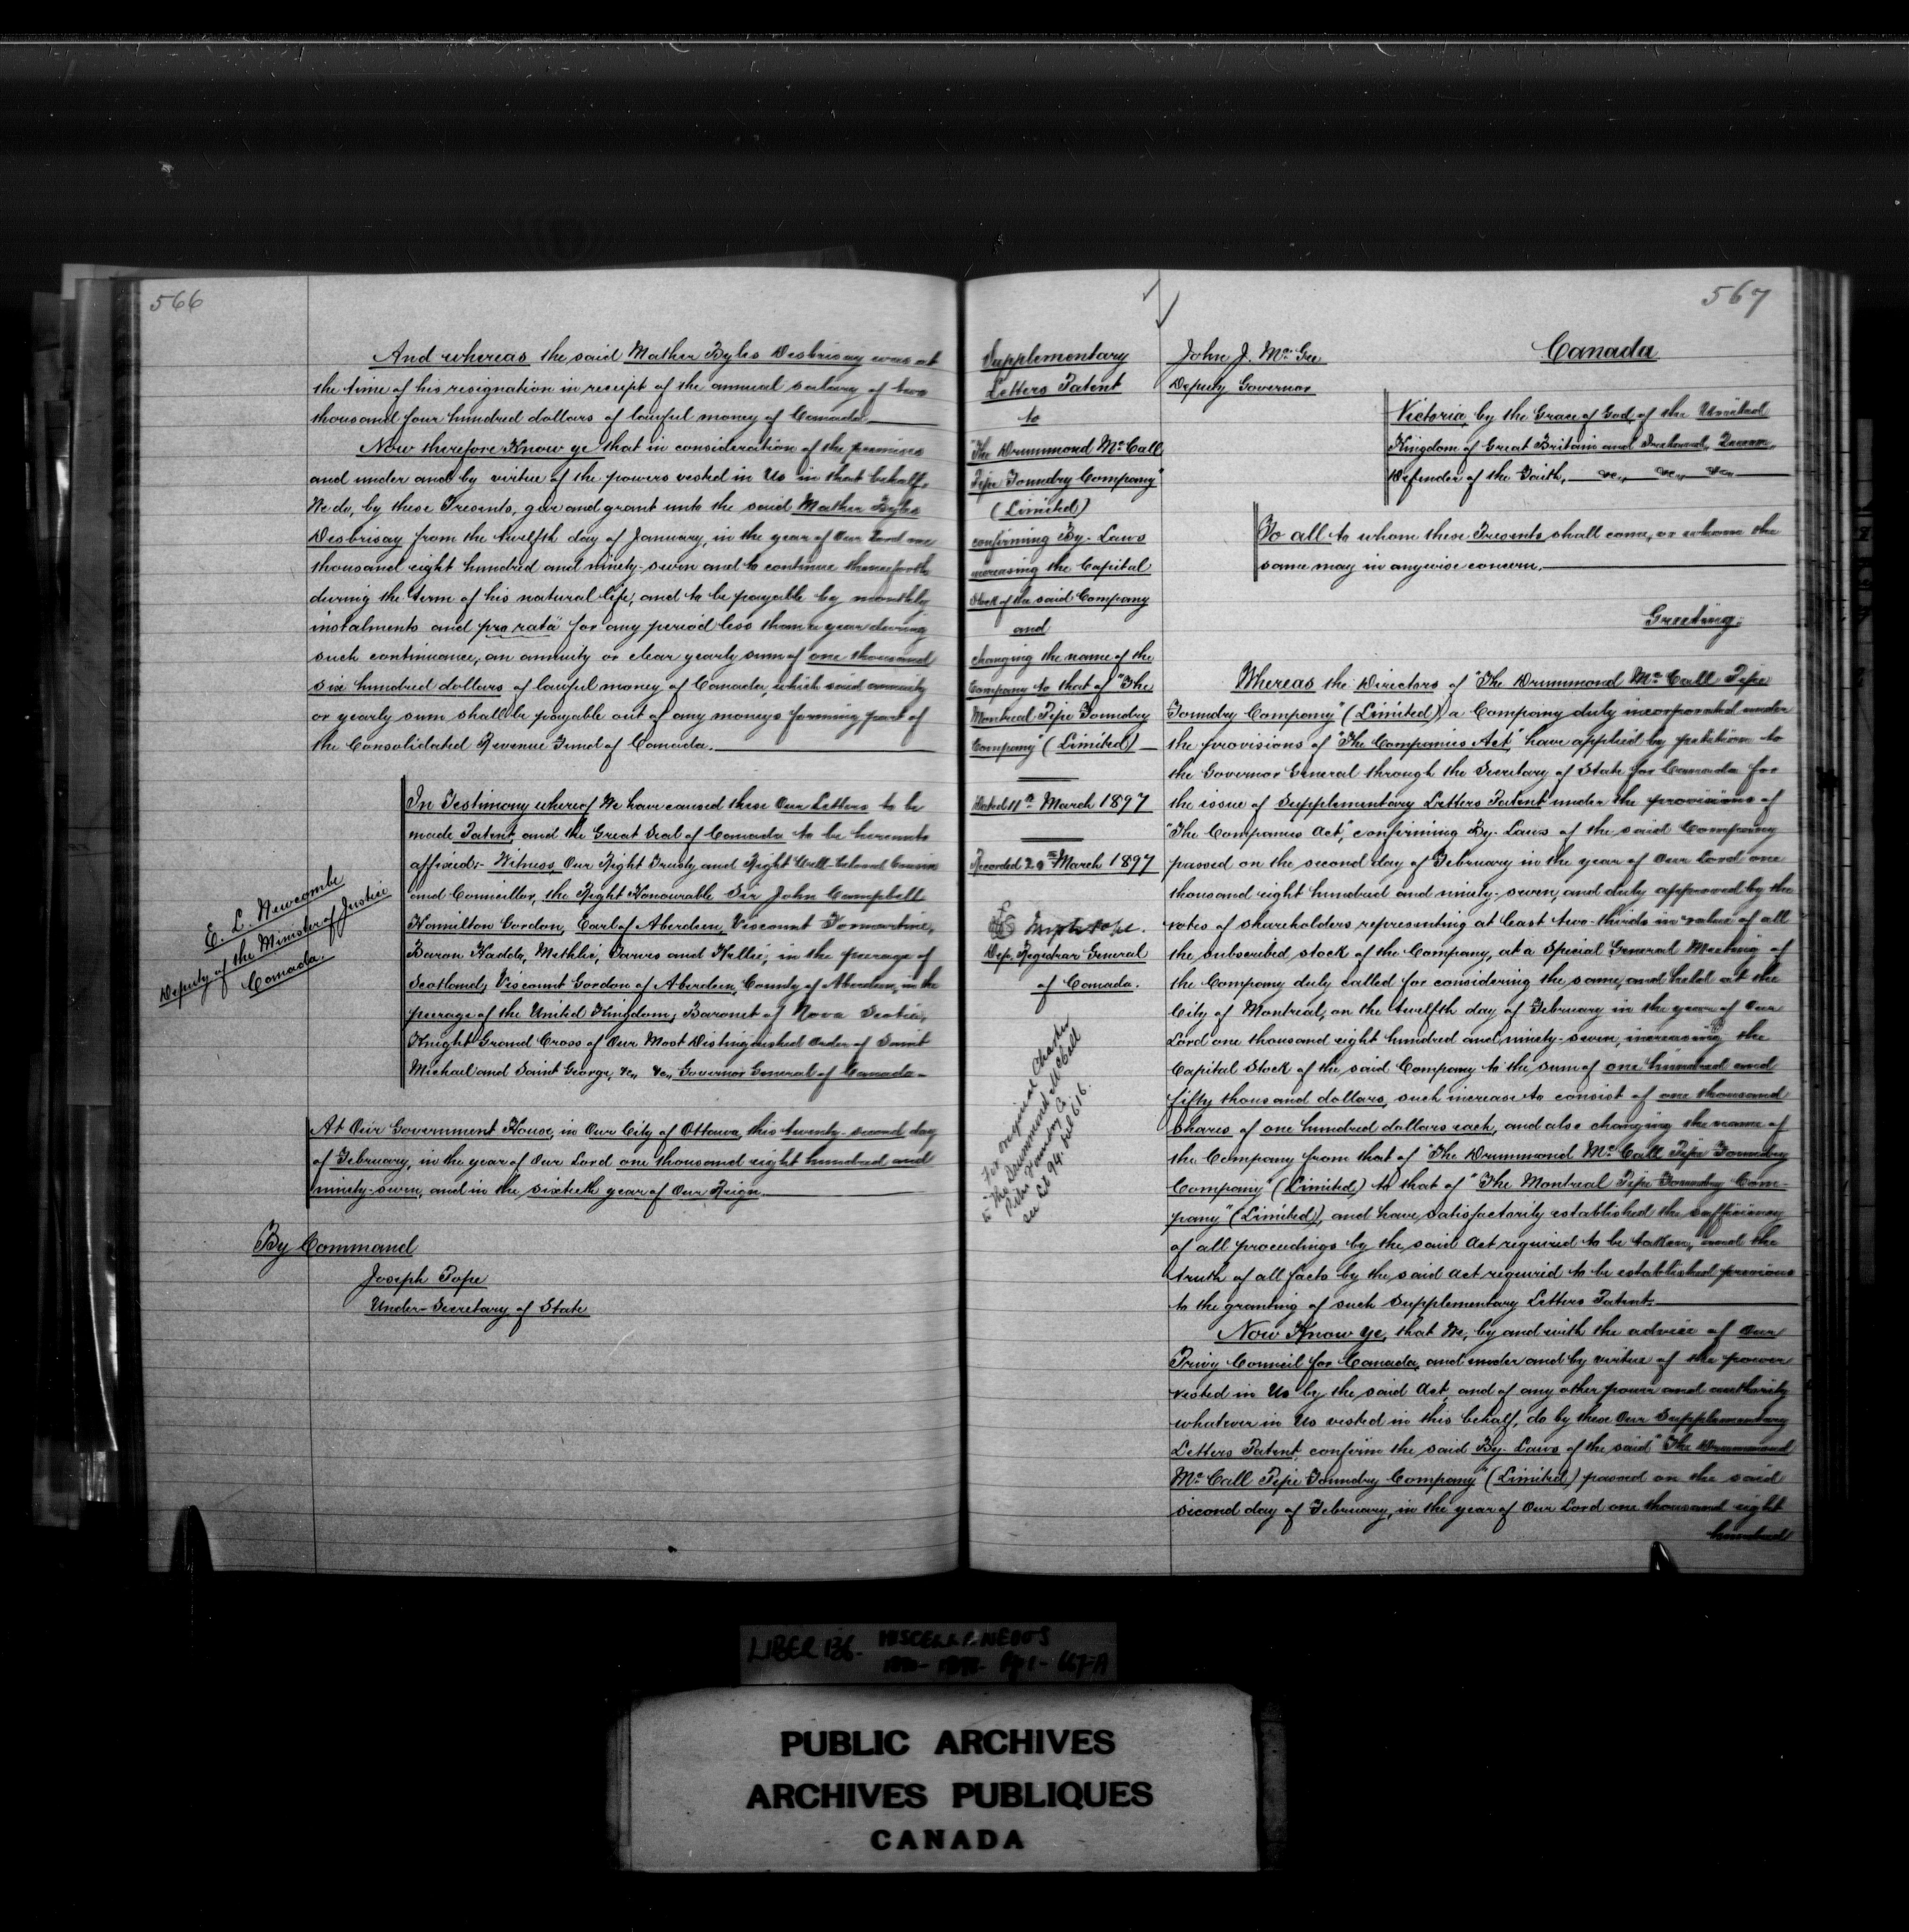 566
And whereas the said Mather Byles Desbrisay was at
the time of his resignation in receipt of the annual salary of two
thousand four hundred dollars of lawful money of Canada
Now therefore Know ye that in consideration of the premises
and under and by virtue of the powers vested in Us in that behalf,
We do, by these Presents, give and grant unto the said Mather Byles
Desbrisay from the twelfth day of January, in the year of Our Lord one
thousand eight hundred and ninety-seven and to continue thenceforth
during the term of his natural life, and to be payable by monthly
instalments and pro rata for any period less than a year during
such continuance, an annuity or clear yearly sum of one thousand
six hundred dollars of lawful money of Canada, which said annuity
or yearly sum shall be payable out of any moneys forming part of
the Consolidated Revenue Fund of Canada.
In Testimony whereof We have caused these Our Letters to be
made Patent, and the Great Seal of Canada to be hereunto
affixed:- Witness, Our Right Trusty and Right Well-beloved Cousin
and Councillor, the Right Honourable Sir John Campbell
Hamilton Gordon, Earl of Aberdeen, Viscount Formartine,
Baron Haddo, Methlic, Tarves and Kellie, in the peerage of
Scotland; Viscount Gordon of Aberdeen, County of Aberdeen, in the
peerage of the United Kingdom; Baronet of Nova Scotia,
Knight Grand Cross of Our Most Distinguished Order of Saint
Michael and Saint George, &c, &c, Governor General of Canada.
E. L. Newcombe
Deputy of the Minister of Justice
Canada.
At Our Government House, in Our City of Ottawa, this twenty-second day
of February, in the year of Our Lord one thousand eight hundred and
ninety-seven, and in the sixtieth year of Our Reign.
By Command
Joseph Pope
Under-Secretary of State
567
Supplementary
Letters Patent
to
"The Drummond McCall
Pipe Foundry Company"
(Limited)
confirming By-Laws
increasing the Capital
Stock of the said Company
and
changing the name of the
Company to that of "The
Montreal Pipe Foundry
Company" (Limited)
Dated 11th March 1897
Recorded March 1897
Joseph Pope.
Dep. Registrar General
of Canada.
For original Charter
to The Drummond McCall
Pipe Foundry Co
see Lib 94. Fol 616.
John J. McGee
Deputy Governor
Canada
Victoria, by the Grace of God, of the United
Kingdom of Great Britain and Ireland, Queen,
Defender of the Faith, &c, &c, &c
To all to whom these Presents shall come, or whom the
same may in anywise concern,
Greeting:
Whereas the Directors of "The Drummond McCall Pipe
Foundry Company" (Limited), a Company duly incorporated under
the provisions of "The Companies Act," have applied by petition to
the Governor General through the Secretary of State for Canada for
the issue of Supplementary Letters Patent under the provisions of
"The Companies Act," confirming By-Laws of the said Company
passed on the second day of February in the year of Our Lord one
thousand eight hundred and ninety-seven, and duly approved by the
votes of shareholders representing at least two-thirds in value of all
the subscribed stock of the Company, at a Special General Meeting of
the Company duly called for considering the same, and held at the
City of Montreal, on the twelfth day of February in the year of Our
Lord one thousand eight hundred and ninety-seven, increasing the
Capital Stock of the said Company to the sum of one hundred and
fifty thousand dollars, such increase to consist of one thousand
shares of one hundred dollars each, and also changing the name of
the Company from that of "The Drummond McCall Pipe Foundry
Company" (Limited) to that of "The Montreal Pipe Foundry Com-
pany" (Limited), and have satisfactorily established the sufficiency
of all proceedings by the said Act required to be taken, and the
truth of all facts by the said Act required to be established previous
to the granting of such Supplementary Letters Patent.
Now Know ye, that We, by and with the advice of Our
Privy Council for Canada, and under and by virtue of the power
vested in Us by the said Act, and of any other power and authority
whatever in Us vested in this behalf, do by these Our Supplementary
Letters Patent, confirm the said By-Laws of the said "The Drummond
McCall Pipe Foundry Company" (Limited) passed on the said
second day of February, in the year of Our Lord one thousand eight
hundred
LIBER 136. MISCELLANEOUS
PUBLIC ARCHIVES
ARCHIVES PUBLIQUES
CANADA